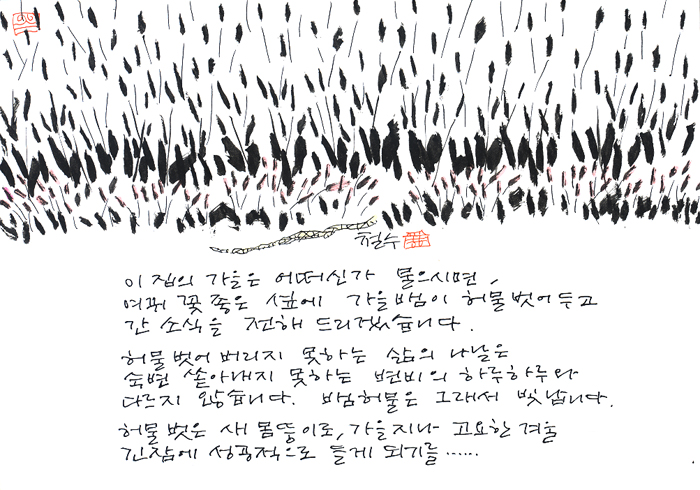 철수
이 집의 가을은 어떠신가 물으시면,
여뀌 꽃 좋은 섶에 가을뱀이 허물 벗어 두고
간 소식을 전해 드리겠습니다.
허물 벗어 버리지 못하는 삶의 나날은
숙변 쏟아내지 못하는 변비의 하루하루와
다르지 않습니다. 뱀허물은 그래서 빛납니다.
허물 벗은 새 몸뚱이로, 가을 지나 고요한 겨울
긴잠에 성공적으로 들게 되기를......